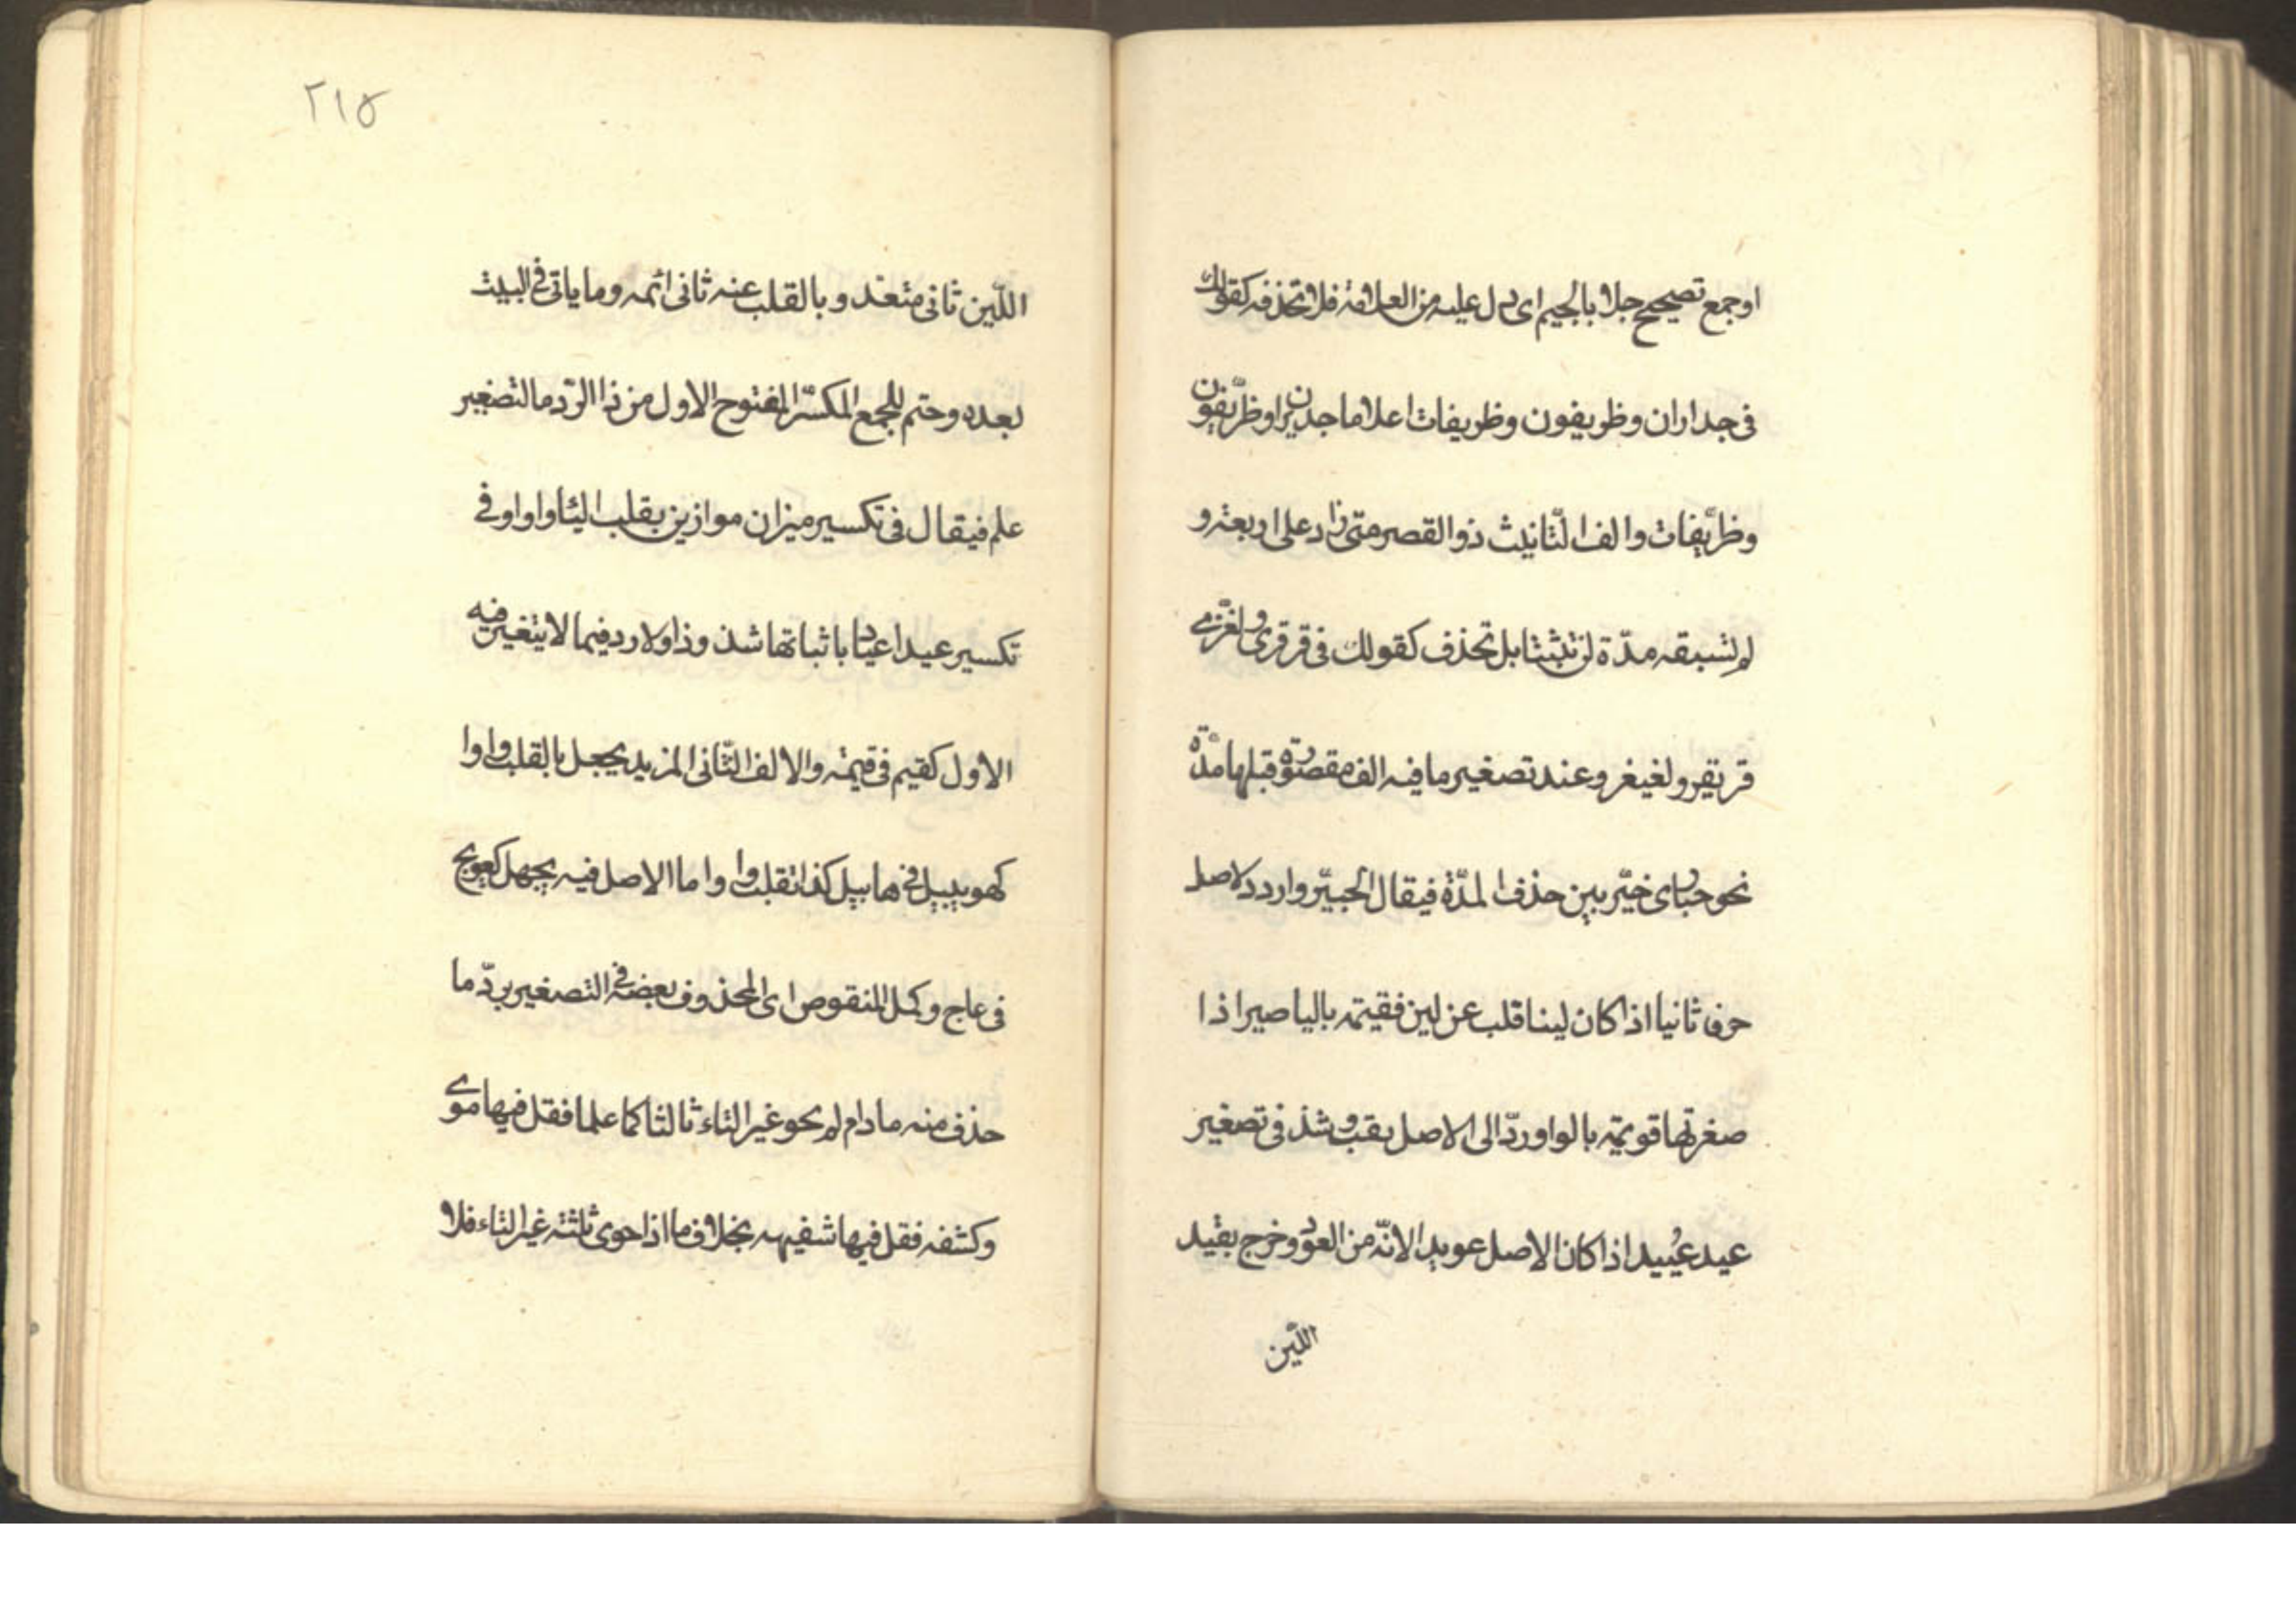 اوجمع تصحيح جلا بالجيم اى دل عليه من العلامة فلا تحذفه كقولك
فى جداران وظريفون وظريفات اعلاما جديران وظريّفون
وظريّفات والف التّانيث ذو القصر متى زاد على اربعة و
لم تسبقه مدّة لن تثبتا بل تحذف كقولك فى قرقرى ولغّيزى
قريقر ولغيغز وعند تصغير ما فيه الف مقصورة قبلها مدّة
نحو حبارى خيّر بين حذف المدّة فيقال الحبيّر واردد لاصل
حرف ثانيا اذا كان لينا قلب عن لين فقيمة بالياء صير اذا
صغرتها قويمة بالواو ردّ الى الاصل يقب وشذ فى تصغير
عيد عُييد اذا كان الاصل عويد الانّه من العود وخرج بقيد
اللّين
٢١٥
اللّين ثانى متعد وبالقلب عنه ثانى ائمه وما ياتى فى البيت
بعده وحتم للجمع المكسّر المفتوح الاول من ذا الرّد ما لتصغير
علم فيقال فى تكسير ميزان موازين بقلب اليا واوا وفى
تكسير عيد اعياد باثباتها شذ وذا ولا رد فيما لا يتغير فيه
الاول كقيم فى قيمة والالف الثّانى المزيد يجعل بالقلب واوا
كهويبيل فى هابيل كذا تقلب واوا ما الاصل فيه يجهل كعويج
فى عاج وكمل المنقوص اى المحذوف بعضه فى التصغير بردّ ما
حذف منه مادام لم يحو غير التاء ثالثا كما علما فقل فيها موى
وكشفه فقل فيها شفيهه بخلاف ما اذا حوى ثلثة غير التاء فلا